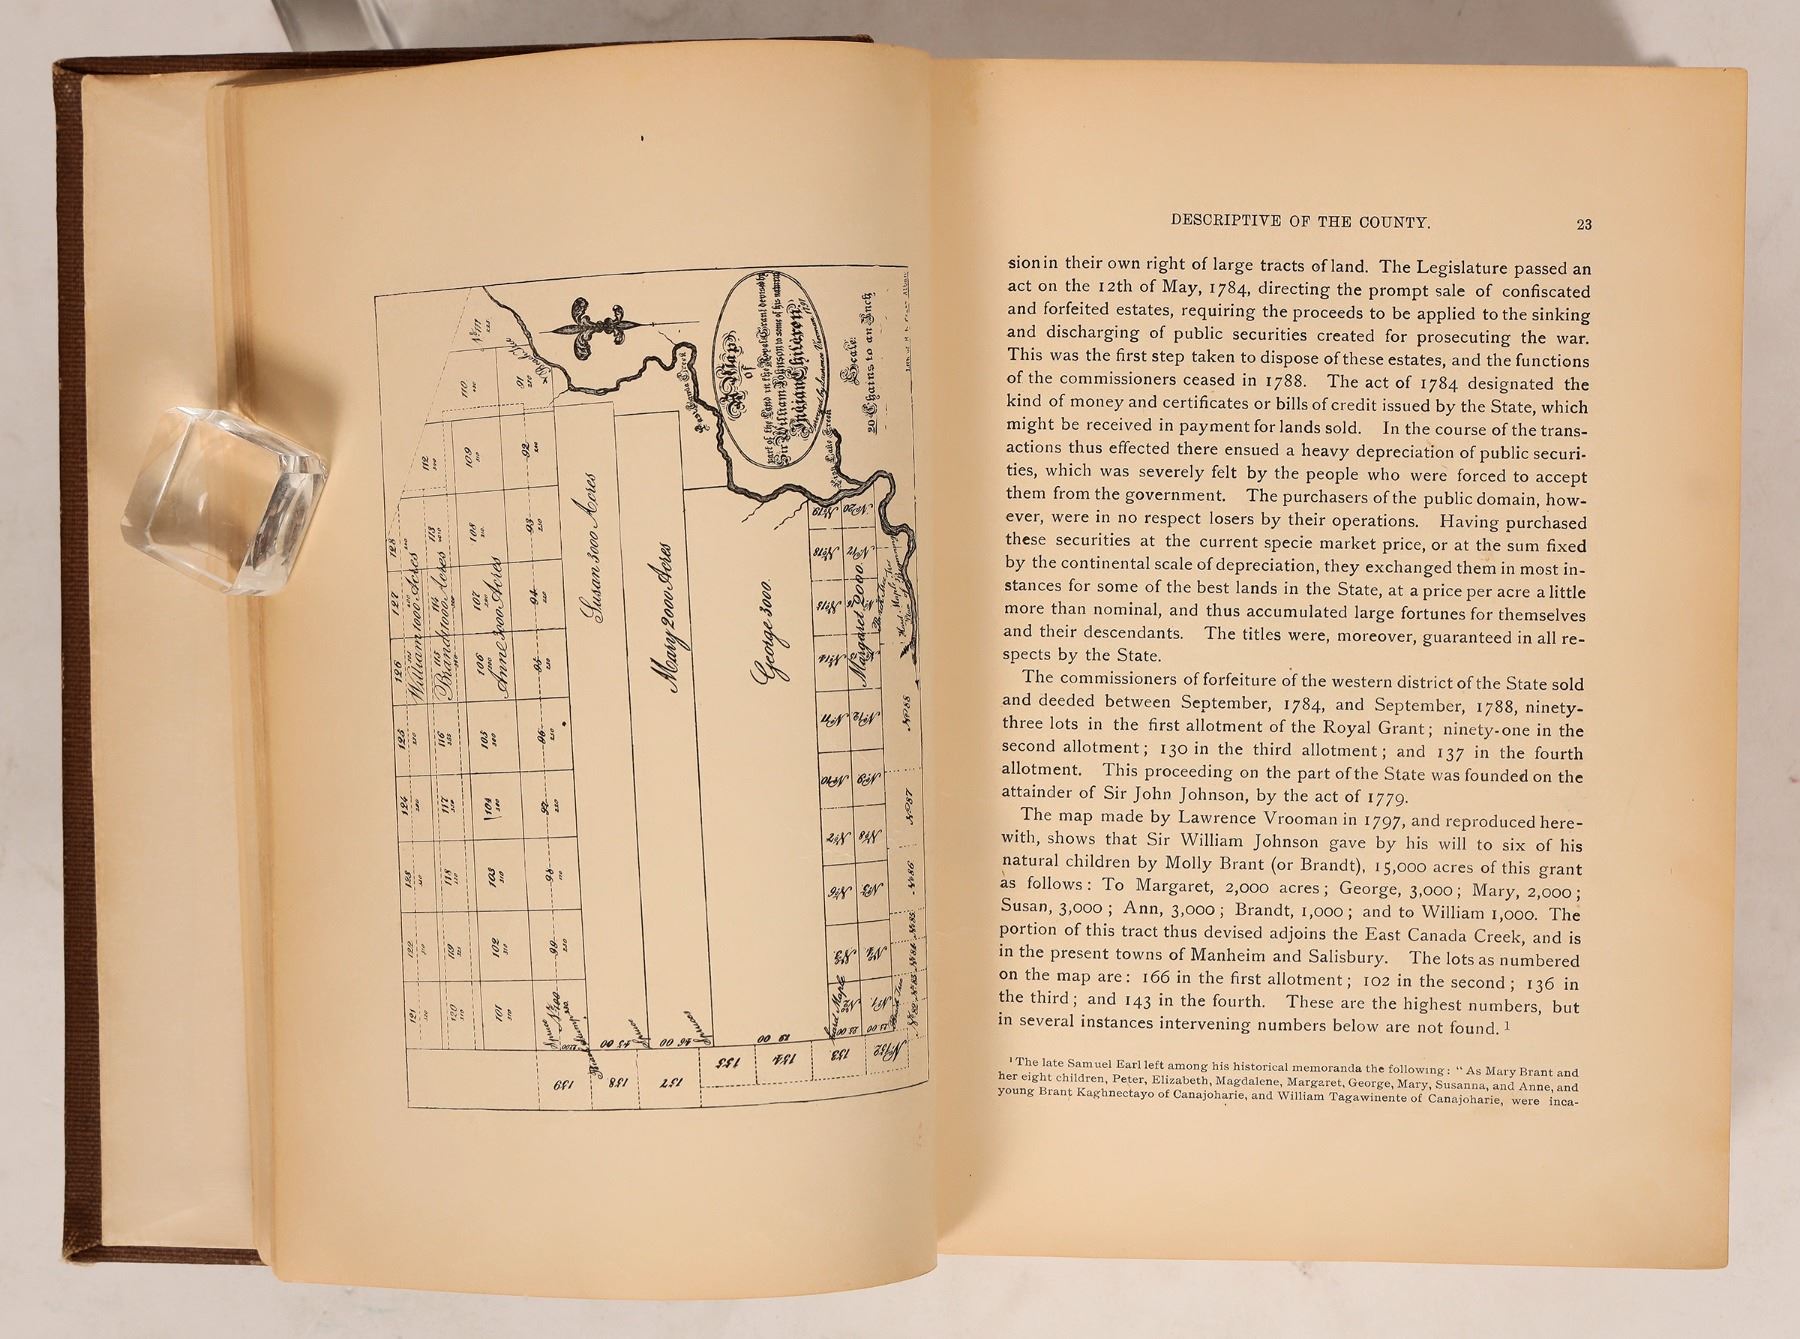 A Map
of
part of the Land in the Royal Grant devised by
Sir William Johnson to some of his natural
Indian Children.
Surveyed by Lawrence Vrooman
Scale.
20 Chains to an Inch
East Canada Creek
Creek
William 1000 Acres
Brandt 1000 Acres
Anne 3000 Acres
Susan 3000 Acres
Mary 2000 Acres
George 3000.
Margaret 2000.
128
127
126
125
124
123
122
121
112
113
114
115
116
117
118
119
120
110
109
108
107
106
105
104
103
102
101
91
92
93
94
95
96
98
99
139
138
137
135
134
133
No. 132
Spruce
Spruce
Spruce
45 00
46 00
29 00
No. 20
No. 19
No. 18
No. 17
No. 15
No. 14
No. 12
No. 11
No. 10
No. 9
No. 8
No. 7
No. 6
No. 5
No. 4
No. 3
No. 1
No. 88
No. 87
No. 86
No. 85
No. 84
No. 83
No. 82
DESCRIPTIVE OF THE COUNTY. 23
sion in their own right of large tracts of land. The Legislature passed an
act on the 12th of May, 1784, directing the prompt sale of confiscated
and forfeited estates, requiring the proceeds to be applied to the sinking
and discharging of public securities created for prosecuting the war.
This was the first step taken to dispose of these estates, and the functions
of the commissioners ceased in 1788. The act of 1784 designated the
kind of money and certificates or bills of credit issued by the State, which
might be received in payment for lands sold. In the course of the trans-
actions thus effected there ensued a heavy depreciation of public securi-
ties, which was severely felt by the people who were forced to accept
them from the government. The purchasers of the public domain, how-
ever, were in no respect losers by their operations. Having purchased
these securities at the current specie market price, or at the sum fixed
by the continental scale of depreciation, they exchanged them in most in-
stances for some of the best lands in the State, at a price per acre a little
more than nominal, and thus accumulated large fortunes for themselves
and their descendants. The titles were, moreover, guaranteed in all re-
spects by the State.
The commissioners of forfeiture of the western district of the State sold
and deeded between September, 1784, and September, 1788, ninety-
three lots in the first allotment of the Royal Grant; ninety-one in the
second allotment; 130 in the third allotment; and 137 in the fourth
allotment. This proceeding on the part of the State was founded on the
attainder of Sir John Johnson, by the act of 1779.
The map made by Lawrence Vrooman in 1797, and reproduced here-
with, shows that Sir William Johnson gave by his will to six of his
natural children by Molly Brant (or Brandt), 15,000 acres of this grant
as follows: To Margaret, 2,000 acres; George, 3,000; Mary, 2,000;
Susan, 3,000; Ann, 3,000; Brandt, 1,000; and to William 1,000. The
portion of this tract thus devised adjoins the East Canada Creek, and is
in the present towns of Manheim and Salisbury. The lots as numbered
on the map are: 166 in the first allotment; 102 in the second; 136 in
the third; and 143 in the fourth. These are the highest numbers, but
in several instances intervening numbers below are not found. ¹
¹ The late Samuel Earl left among his historical memoranda the following: " As Mary Brant and
her eight children, Peter, Elizabeth, Magdalene, Margaret, George, Mary, Susanna, and Anne, and
young Brant Kaghnectayo of Canajoharie, and William Tagawinente of Canajoharie, were inca-